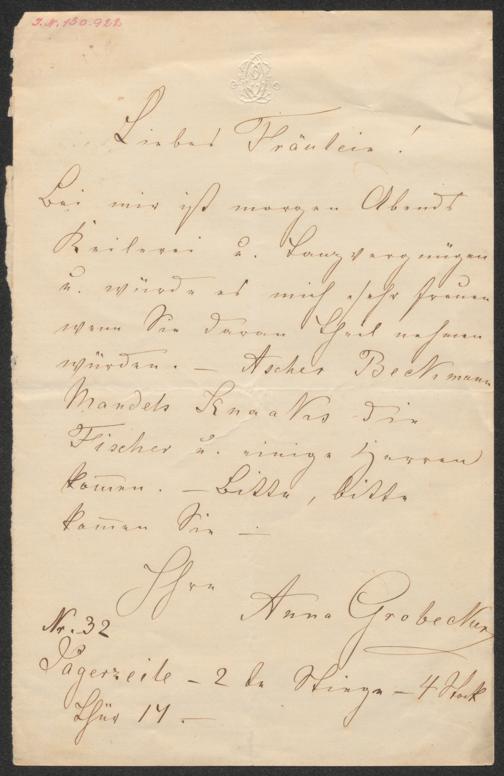 J.N. 150.922
Liebes Fräulein!
Bei mir ist morgen Abends
Keilerei u. Tanzvergnügen
u. würde es mich sehr freuen
wenn Sie daran Theil nehmen
würden. — Ascher Beckmann
Mandels Knaaks die
Fischer u. einige Herren
kom̄en. — Bitte, bitte
kom̄en Sie —
Ihre
Anna Grobecker
Nr. 32
Jägerzeile — 2te Stiege — 4 Stock
Thür 17. —